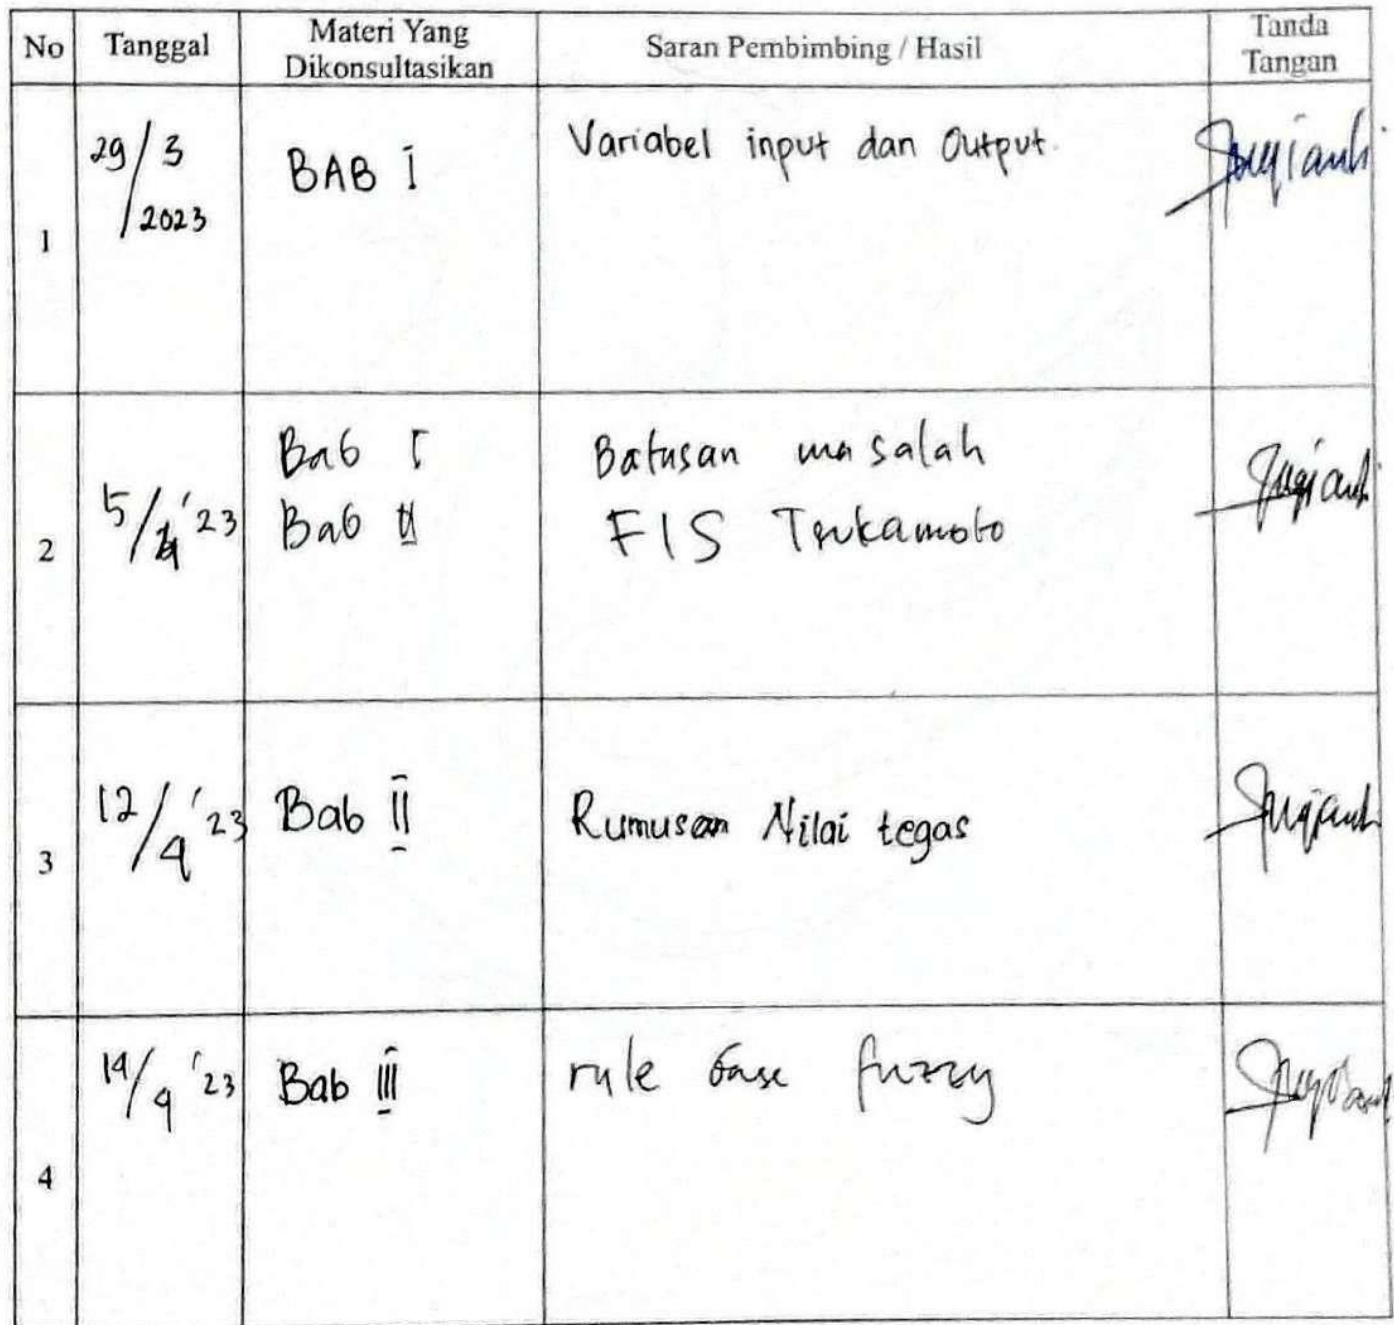 No Tanggal Materi Yang Dikonsultasikan Saran Pembimbing / Hasil Tanda Tangan
1 29/3/2023 BAB I Variabel input dan Output.
2 5/4 '23 Bab I Batasan masalah
Bab II FIS Tsukamoto
3 12/4 '23 Bab II Rumusan Nilai tegas
4 14/4 '23 Bab III rule base fuzzy